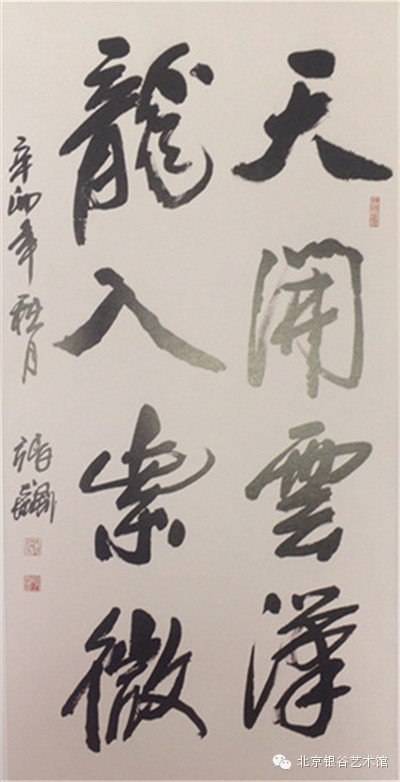 天開雲漢
龍入紫微
辛卯年秋月
北京银谷艺术馆